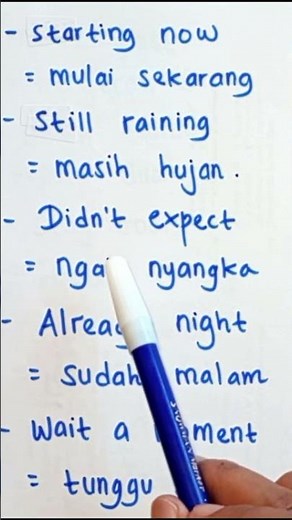 - Starting now
= mulai sekarang
- Still raining
= masih hujan.
- Didn't expect
= nyangka
- night
= Sudah malam
- Wait a
= tunggu